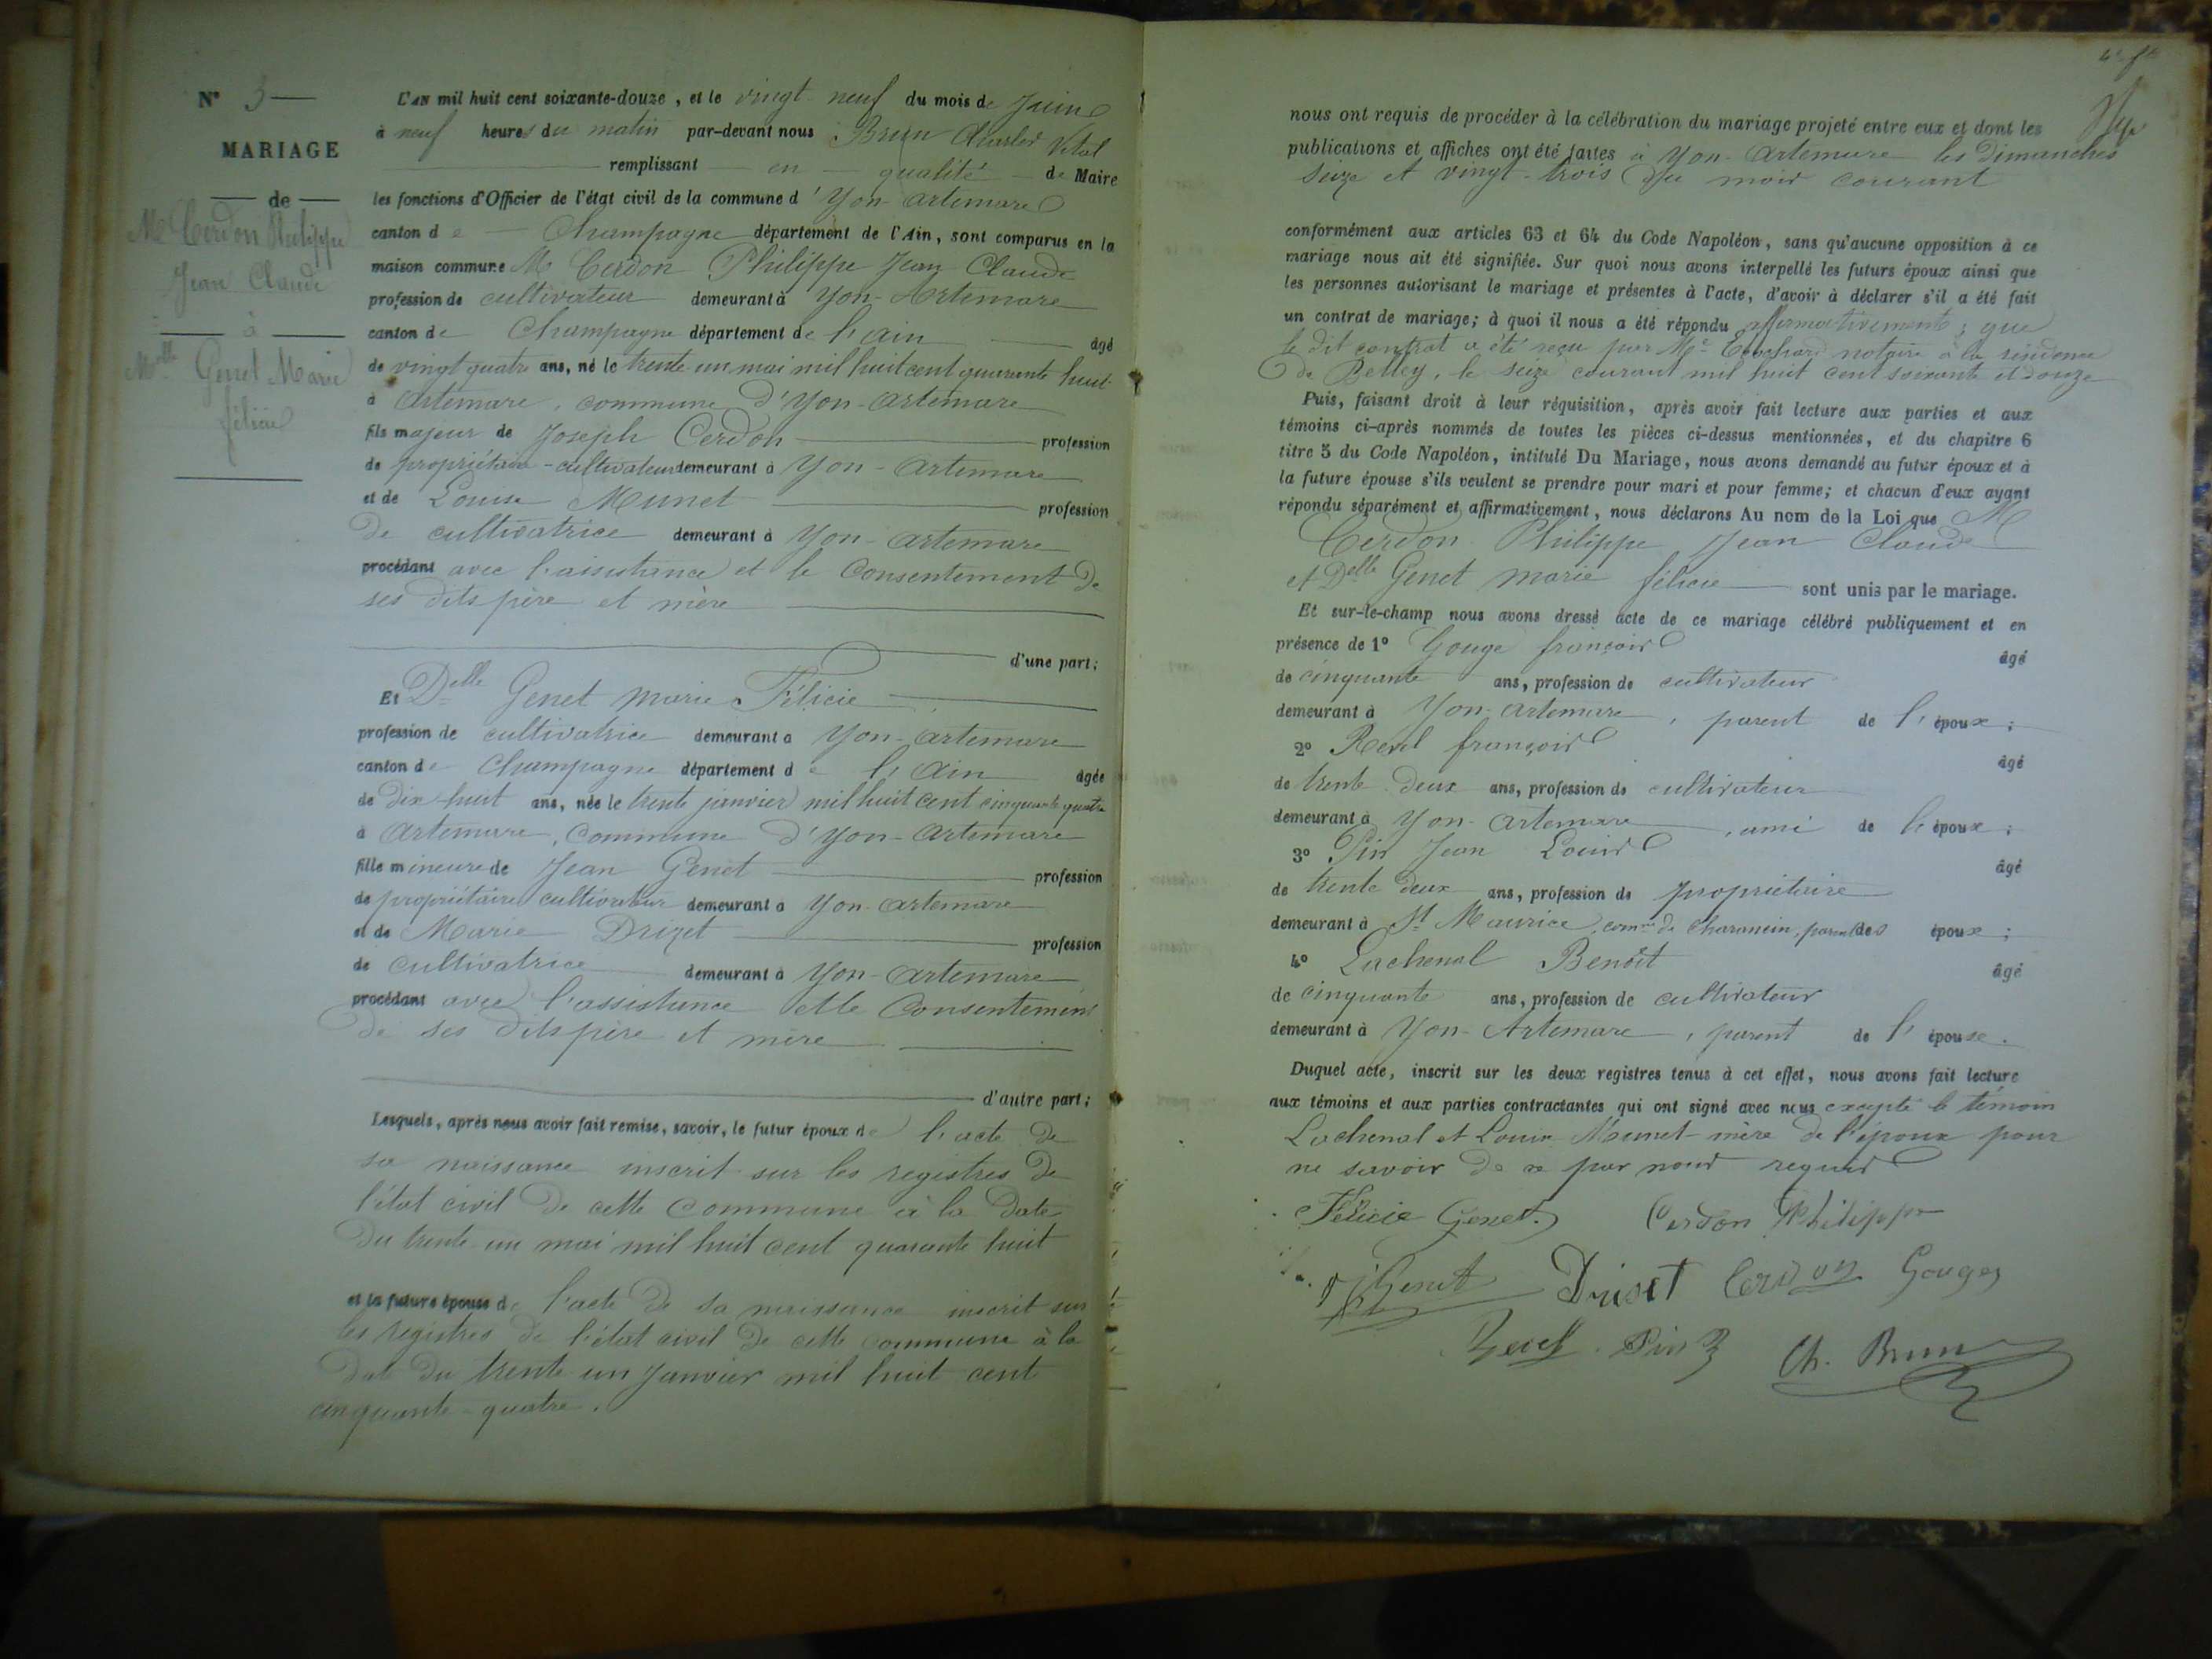 N° 3
MARIAGE
de
Mr Cerdon Philippe
Jean Claude
à
Melle Genet Marie
félicie
L'AN mil huit cent soixante-douze, et le vingt neuf du mois de Juin
à neuf heures du matin par-devant nous Brun Charles Vital
remplissant en qualité de Maire
les fonctions d'Officier de l'état civil de la commune d'Yon-Artemare
canton de Champagne département de l'Ain, sont comparus en la
maison commune M Cerdon Philippe Jean Claude
profession de cultivateur demeurant à Yon-Artemare
canton de Champagne département de l'ain âgé
de vingt quatre ans, né le trente un mai mil huit cent quarante huit
à Artemare, commune d'Yon-Artemare
fils majeur de Joseph Cerdon profession
de propriétaire-cultivateur demeurant à Yon-Artemare
et de Louise Munet profession
De cultivatrice demeurant à Yon-Artemare
procédant avec l'assistance et le Consentement De
ses dits père et mère
d'une part;
Et Delle Genet marie Félicie
profession de cultivatrice demeurant à Yon-Artemare
canton de Champagne département de l'Ain âgée
de Dix huit ans, née le trente janvier mil huit cent cinquante quatre
à Artemare, Commune d'Yon-Artemare
fille mineure de Jean Genet profession
de propriétaire cultivateur demeurant à Yon-Artemare
et de Marie Drizet profession
de Cultivatrice demeurant à Yon-Artemare
procédant avec l'assistance et le Consentement
De ses dits père et mère
d'autre part;
Lesquels, après nous avoir fait remise, savoir, le futur époux de l'acte De
sa naissance inscrit sur les registres De
l'état civil De cette Commune à la Date
Du trente-un mai mil huit cent quarante huit
et la future épouse de l'acte De sa naissance inscrit sur
les registres De l'état civil De cette commune à la
Date Du trente un Janvier mil huit cent
cinquante-quatre.
nous ont requis de procéder à la célébration du mariage projeté entre eux et dont les
publications et affiches ont été faites à Yon-Artemare les Dimanches
seize et vingt-trois Du mois courant
conformément aux articles 63 et 64 du Code Napoléon, sans qu'aucune opposition à ce
mariage nous ait été signifiée. Sur quoi nous avons interpellé les futurs époux ainsi que
les personnes autorisant le mariage et présentes à l'acte, d'avoir à déclarer s'il a été fait
un contrat de mariage; à quoi il nous a été répondu affirmativement; que
le dit contrat a été reçu par Me notaire à la résidence
De Belley, le seize courant mil huit cent soixante et douze
Puis, faisant droit à leur réquisition, après avoir fait lecture aux parties et aux
témoins ci-après nommés de toutes les pièces ci-dessus mentionnées, et du chapitre 6
titre 5 du Code Napoléon, intitulé Du Mariage, nous avons demandé au futur époux et à
la future épouse s'ils veulent se prendre pour mari et pour femme; et chacun d'eux ayant
répondu séparément et affirmativement, nous déclarons Au nom de la Loi que M
Cerdon Philippe Jean Claude
et Delle Genet marie félicie sont unis par le mariage.
Et sur-le-champ nous avons dressé acte de ce mariage célébré publiquement et en
présence de 1° Gouge françois âgé
de cinquante ans, profession de cultivateur
demeurant à Yon-Artemare, parent de l'époux;
2° françois âgé
de trente Deux ans, profession de cultivateur
demeurant à Yon-Artemare, ami de l'époux;
3° Pin Jean Louis âgé
de trente deux ans, profession de propriétaire
demeurant à St Maurice, comne de Charancin, parent des époux;
4° Lachenal Benoît âgé
de cinquante ans, profession de cultivateur
demeurant à Yon-Artemare, parent de l'épouse.
Duquel acte, inscrit sur les deux registres tenus à cet effet, nous avons fait lecture
aux témoins et aux parties contractantes qui ont signé avec nous excepté le témoin
Lachenal et Louise Munet mère De l'époux pour
ne savoir De ce par nous requis
Félicie Genet. Cerdon Philippe
Genet Driset Cerdon Gouges
Pin Ch. Brun